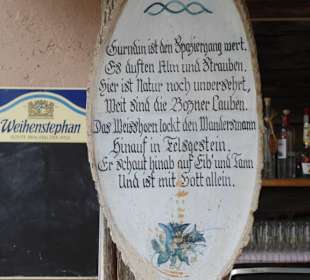 Gurndin ist den Spaziergang wert.
Es duften Alm und Strauben.
Hier ist Natur noch unversehrt,
Weit sind die Bozner Lauben.
Das Weisshorn lockt den Wandersmann
Hinauf in Felsgestein.
Er schaut hinab auf Eib' und Tann
Und ist mit Gott allein.
Weihenstephan